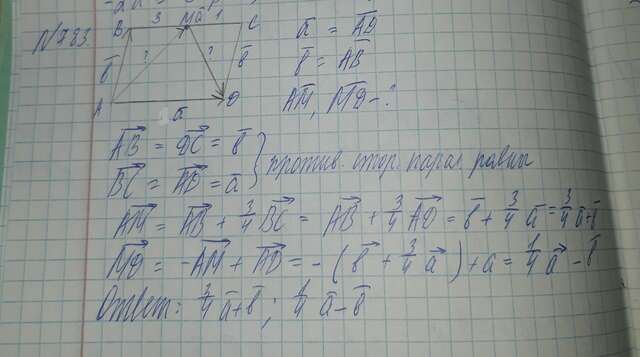 N 783.
B 3 M ā 1 C
b̄ ? ? b̄
A ā D
ā = AD̄
b̄ = AB̄
AM̄, MD̄ - ?
AB⃗ = DC⃗ = b̄
BC⃗ = AD⃗ = ā
} против. стор. парал. равны
AM⃗ = AB⃗ + 3/4 BC⃗ = AB⃗ + 3/4 AD⃗ = b̄ + 3/4 ā = 3/4 ā + b̄
MD⃗ = -AM⃗ + AD⃗ = -(b⃗ + 3/4 a⃗) + a = 1/4 a⃗ - b̄
Ответ: 3/4 ā + b̄; 1/4 ā - b̄